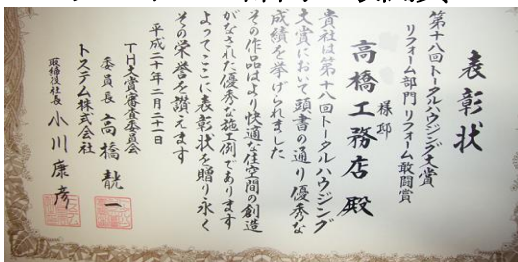 表彰状
第十八回トータルハウジング大賞
リフォーム部門 リフォーム敢闘賞
様邸
高橋工務店 殿
貴社は第十八回トータルハウジング
大賞において頭書の通り優秀な
成績を挙げられました
その作品はより快適な住空間の創造
がなされた優秀な施工例であります
よってここに表彰状を贈り永く
その栄誉を讃えます
平成二十年二月二十一日
TH大賞審査委員会
委員長 高橋 一
トステム株式会社
取締役社長 小川康彦